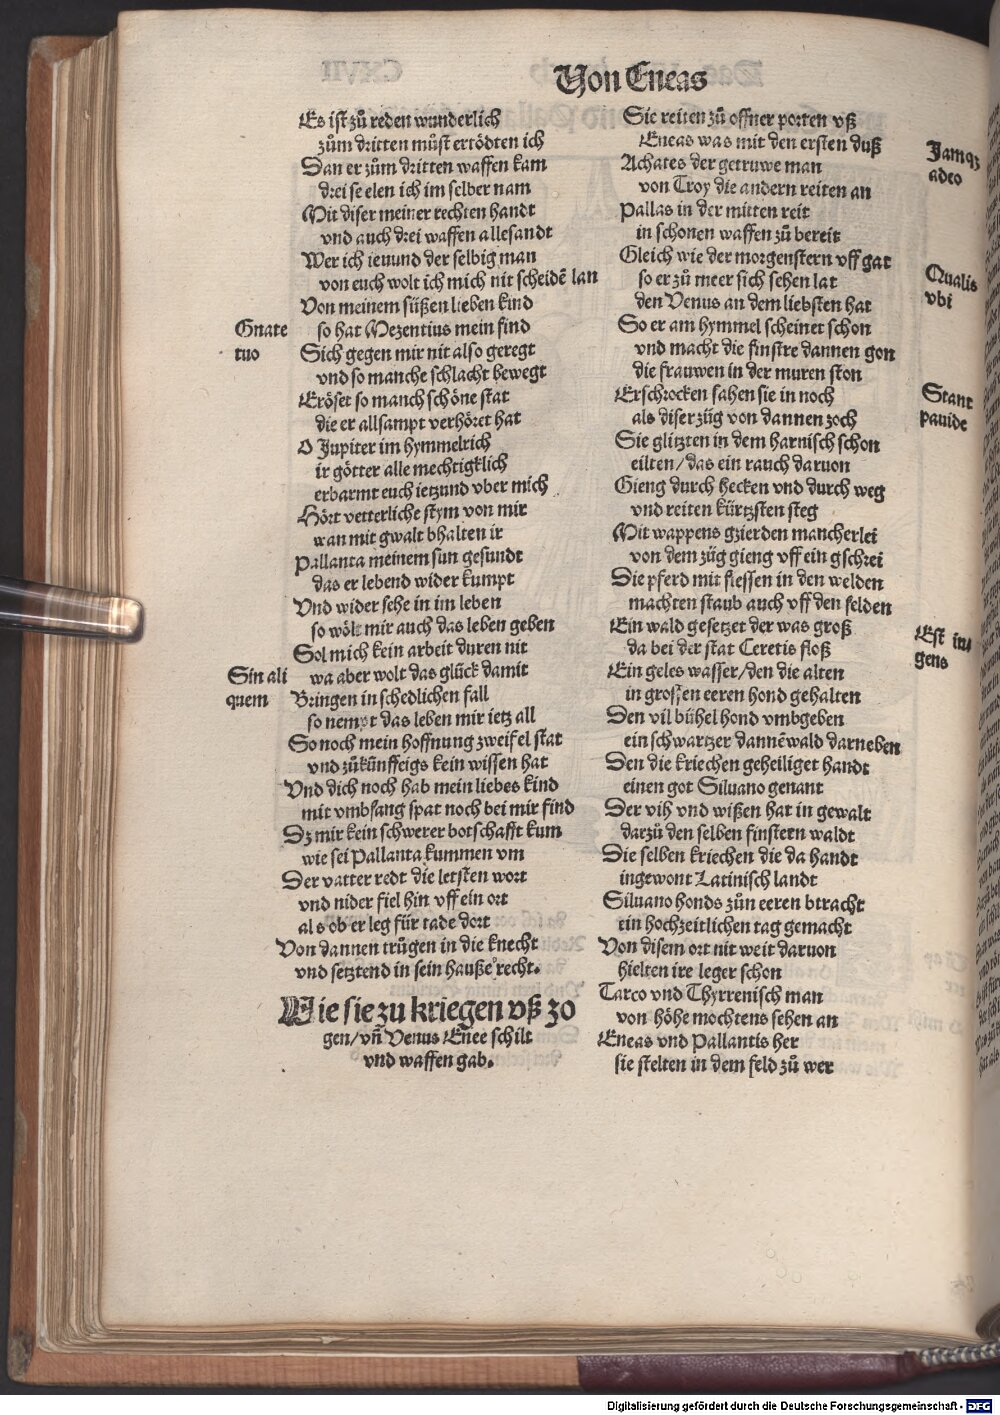 Von Eneas
Es ist zů reden wunderlich
zům dritten můst ertödten ich
Dan er zům dritten waffen kam
drei seelen ich im selber nam
Mit diser meiner rechten handt
vnd auch drei waffen allesandt
Wer ich ieuund der selbig man
von euch wolt ich mich nit scheidē lan
Von meinem süßen lieben kind
Gnate
tuo
so hat Mezentius mein find
Sich gegen mir nit also geregt
vnd so manche schlacht bewegt
Eröset so manch schöne stat
die er allsampt verhöret hat
O Jupiter im hymmelrich
ir götter alle mechtigklich
erbarmt euch ietzund vber mich
Hört vetterliche stym von mir
wan mit gwalt bhalten ir
Pallanta meinem sun gesundt
das er lebend wider kumpt
Vnd wider sehe in im leben
so wölt mir auch das leben geben
Sol mich kein arbeit duren nit
Sin ali
quem
wa aber wolt das glück damit
Bringen in schedlichen fall
so nempt das leben mir ietz all
So noch mein hoffnung zweifel stat
vnd zůkünffeigs kein wissen hat
Vnd dich noch hab mein liebes kind
mit vmbfang spat noch bei mir find
Dz mir kein schwerer botschafft kum
wie sei Pallanta kummen vm
Der vatter redt die letsten wort
vnd nider fiel hin vff ein ort
als ob er leg für tade dort
Von dannen trůgen in die knecht
vnd setztend in sein hauße recht.
Wie sie zu kriegen vß zo
gen/vñ Venus Enee schilt
vnd waffen gab.
Sie reiten zů offner porten vß
Eneas was mit den ersten duß
Jamqz
adeo
Achates der getruwe man
von Troy die andern reiten an
Pallas in der mitten reit
in schonen waffen zů bereit
Gleich wie der morgenstern vff gat
Qualis
vbi
so er zů meer sich sehen lat
den Venus an dem liebsten hat
So er am hymmel scheinet schon
vnd macht die finstre dannen gon
die frauwen in der muren ston
Stant
pauide
Erschrocken sahen sie in noch
als diser züg von dannen zoch
Sie glitzten in dem harnisch schon
eilten/das ein rauch daruon
Gieng durch hecken vnd durch weg
vnd reiten kürtzsten steg
Mit wappens gzierden mancherlei
von dem züg gieng vff ein gschrei
Die pferd mit fiessen in den welden
machten staub auch vff den felden
Ein wald gesetzet der was groß
Est in
gens
da bei der stat Ceretis floß
Ein geles wasser/den die alten
in grossen eeren hond gehalten
Den vil bühel hond vmbgeben
ein schwartzer dannēwald darneben
Den die kriechen geheiliget handt
einen got Siluano genant
Der vih vnd wißen hat in gewalt
darzů den selben finstern waldt
Die selben kriechen die da handt
ingewont Latinisch landt
Siluano honds zůn eeren btracht
ein hochzeitlichen tag gemacht
Von disem ort nit weit daruon
hielten ire leger schon
Tarco vnd Thyrrenisch man
von höhe mochtens sehen an
Eneas vnd Pallantis her
sie stelten in dem feld zů wer
Digitalisierung gefördert durch die Deutsche Forschungsgemeinschaft - DFG